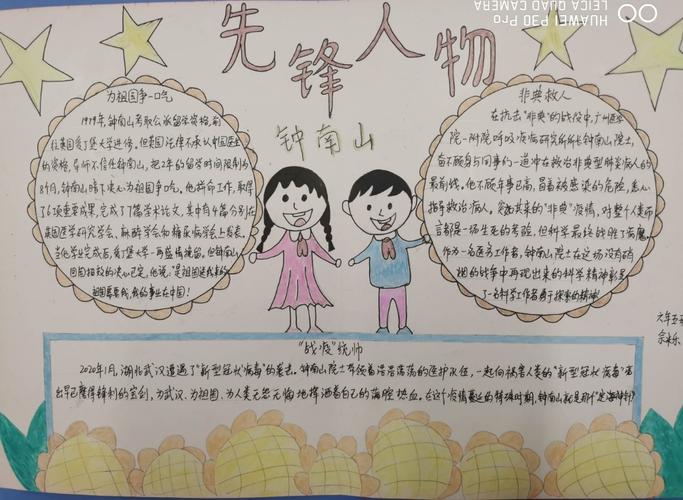 先锋人物
钟南山
为祖国争一口气
1979年,钟南山考取公派留学资格,前
往英国爱丁堡大学进修,但英国法律不承认中国医生
的资格,导师不信任钟南山,把2年的留学时间限制为
8个月,钟南山暗下决心为祖国争气,他拼命工作,取得
了6项重要成果,完成了7篇学术论文,其中有4篇分别在
英国医学研究学会、麻醉学会和糖尿病学会上发表。
当他学业完成后,爱丁堡大学一再盛情挽留,但钟南山
回国报效的决心已定,他说:"是祖国送我来的,
祖国需要我,我的事业在中国!
非典救人
在抗击"非典"的战役中,广州医学
院一附院呼吸疾病研究所所长钟南山院士,
奋不顾身与同事们一道冲在救治非典型肺炎病人的
最前线,他不顾年事已高,冒着被感染的危险,悉心
指导救治病人,突如其来的"非典"疫情,对整个人类而
言都是一场生死的考验,但科学最终战胜了病魔。
作为一名医务工作者,钟南山院士在这场没有硝
烟的战争中再现出来的科学精神彰显
了一名科学工作者勇于探索的精神!
六年五班
"战疫"统帅
2020年1月,湖北武汉遭遇了"新型冠状病毒"的袭击。钟南山院士带领着浩浩荡荡的医护队伍,一起向祸害人类的"新型冠状病毒"亮
出早磨得锋利的宝剑,为武汉、为祖国、为人类无怨无悔地挥洒着自己的满腔热血。在这个疫情蔓延的特殊时期,钟南山就是那个"定海神针"
HUAWEI P30 Pro
LEICA QUAD CAMERA